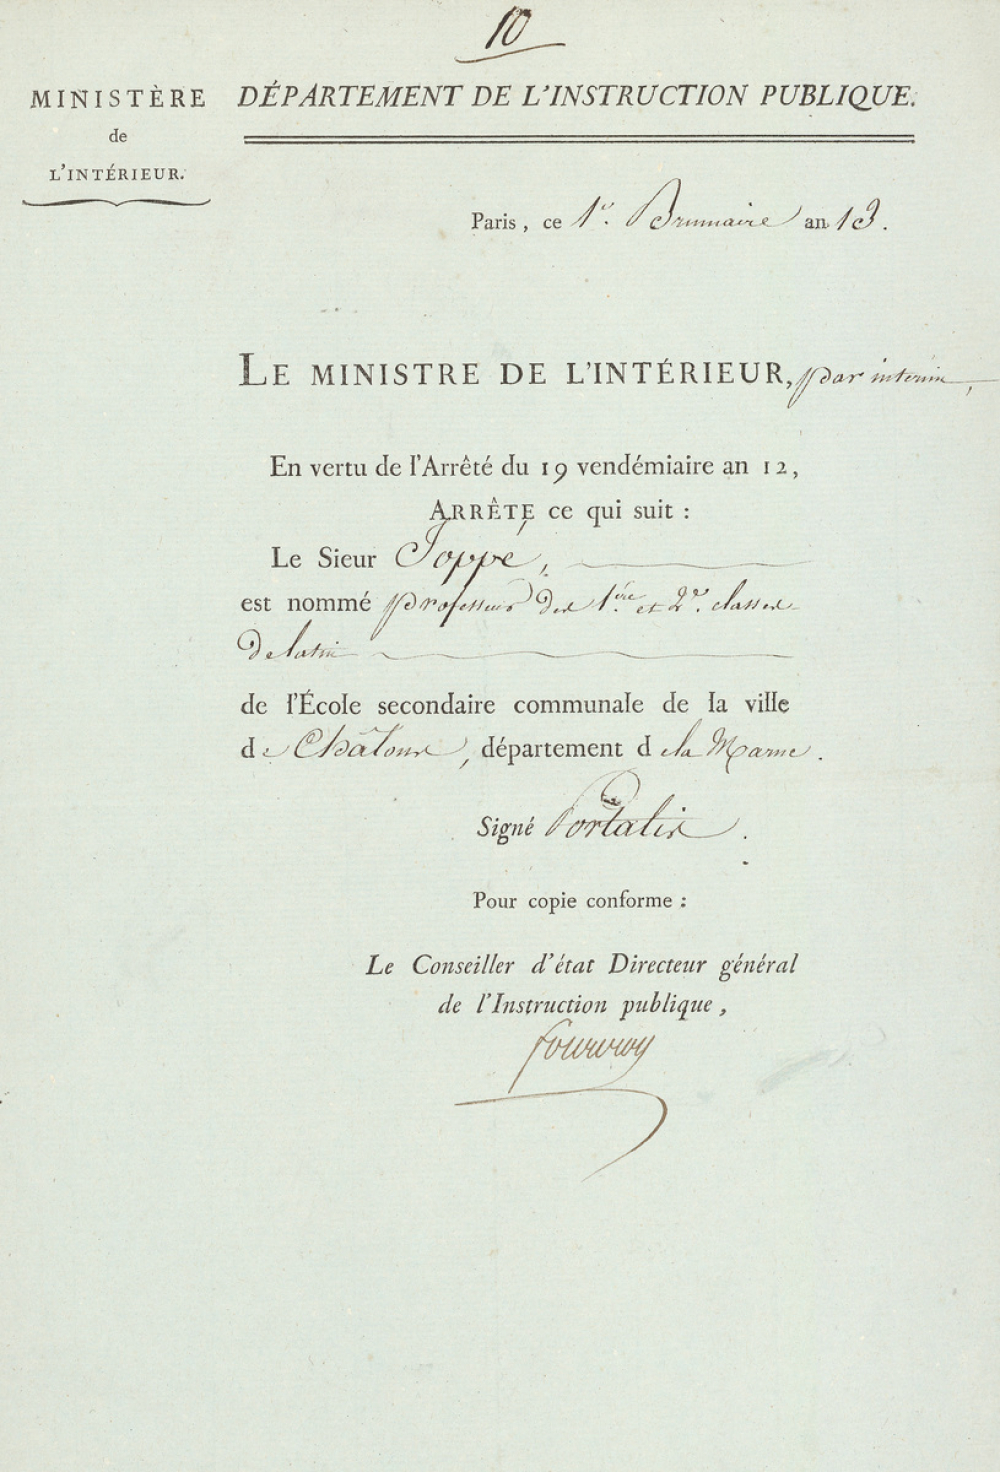 10
MINISTÈRE
de
L'INTÉRIEUR.
DÉPARTEMENT DE L'INSTRUCTION PUBLIQUE.
Paris, ce 1er. Brumaire an 13.
LE MINISTRE DE L'INTÉRIEUR, par interim,
En vertu de l'Arrêté du 19 vendémiaire an 12,
ARRÊTE ce qui suit :
Le Sieur Joppé,
est nommé professeur des 1ère. et 2e. classes
de latin
de l'École secondaire communale de la ville
de Châlons, département de la Marne.
Signé Portalis.
Pour copie conforme :
Le Conseiller d'état Directeur général
de l'Instruction publique,
fourcroy